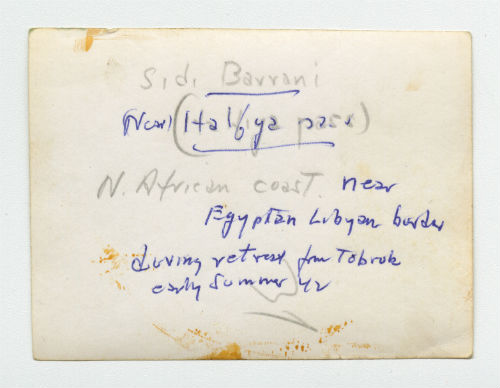 Sidi Barrani
Near (Halfya pass)
N. African coast. near
Egyptan Libyan border
during retreat from Tobruk
early Summer 42